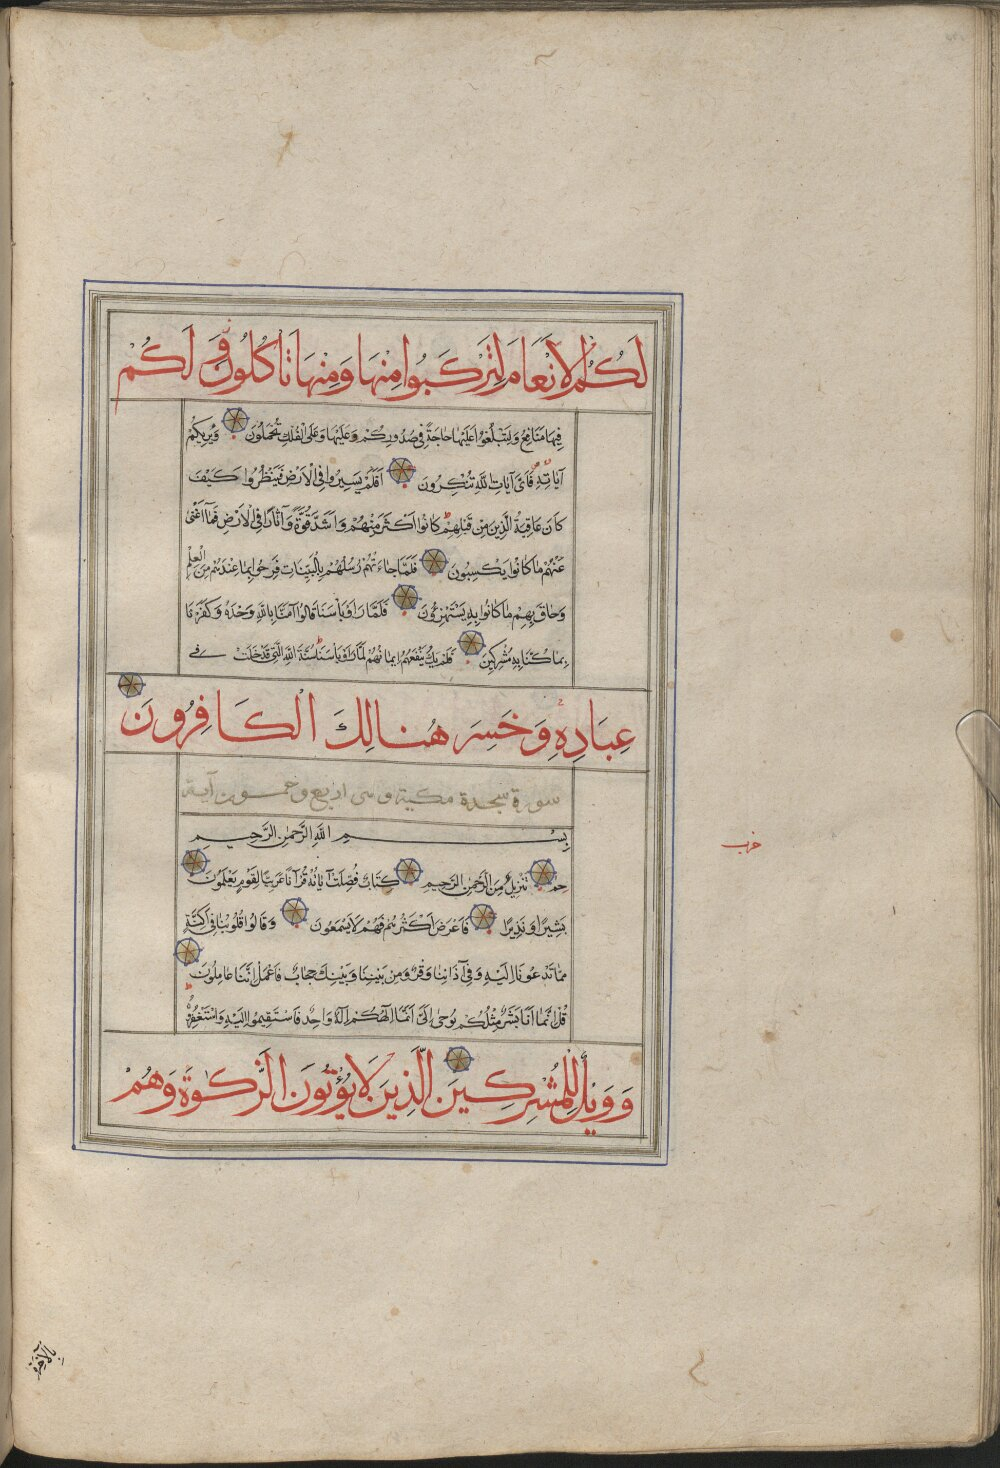 لَكُمُ الْاَنْعَامَ لِتَرْكَبُوا مِنْهَا وَمِنْهَا تَاْكُلُونَ وَلَكُمْ
فِيهَا مَنَافِعُ وَلِتَبْلُغُوا عَلَيْهَا حَاجَةً فِي صُدُورِكُمْ وَعَلَيْهَا وَعَلَى الْفُلْكِ تُحْمَلُونَ وَيُرِيكُمْ
آيَاتِهِ فَاَيَّ آيَاتِ اللَّهِ تُنْكِرُونَ اَفَلَمْ يَسِيرُوا فِي الْاَرْضِ فَيَنْظُرُوا كَيْفَ
كَانَ عَاقِبَةُ الَّذِينَ مِنْ قَبْلِهِمْ كَانُوا اَكْثَرَ مِنْهُمْ وَاَشَدَّ قُوَّةً وَآثَارًا فِي الْاَرْضِ فَمَا اَغْنَى
عَنْهُمْ مَا كَانُوا يَكْسِبُونَ فَلَمَّا جَاءَتْهُمْ رُسُلُهُمْ بِالْبَيِّنَاتِ فَرِحُوا بِمَا عِنْدَهُمْ مِنَ الْعِلْمِ
وَحَاقَ بِهِمْ مَا كَانُوا بِهِ يَسْتَهْزِؤُنَ فَلَمَّا رَاَوْا بَاْسَنَا قَالُوا آمَنَّا بِاللَّهِ وَحْدَهُ وَكَفَرْنَا
بِمَا كُنَّا بِهِ مُشْرِكِينَ فَلَمْ يَكُ يَنْفَعُهُمْ اِيمَانُهُمْ لَمَّا رَاَوْا بَاْسَنَا سُنَّةَ اللَّهِ الَّتِي قَدْ خَلَتْ فِي
عِبَادِهِ وَخَسِرَ هُنَالِكَ الْكَافِرُونَ
سورة سجدة مكية وهى اربع وخمسون آية
بِسْمِ اللَّهِ الرَّحْمٰنِ الرَّحِيمِ
حم تَنْزِيلٌ مِنَ الرَّحْمٰنِ الرَّحِيمِ كِتَابٌ فُصِّلَتْ آيَاتُهُ قُرْآنًا عَرَبِيًّا لِقَوْمٍ يَعْلَمُونَ
بَشِيرًا وَنَذِيرًا فَاَعْرَضَ اَكْثَرُهُمْ فَهُمْ لَا يَسْمَعُونَ وَقَالُوا قُلُوبُنَا فِي اَكِنَّةٍ
مِمَّا تَدْعُونَا اِلَيْهِ وَفِي آذَانِنَا وَقْرٌ وَمِنْ بَيْنِنَا وَبَيْنِكَ حِجَابٌ فَاعْمَلْ اِنَّنَا عَامِلُونَ
قُلْ اِنَّمَا اَنَا بَشَرٌ مِثْلُكُمْ يُوحَى اِلَيَّ اَنَّمَا اِلٰهُكُمْ اِلٰهٌ وَاحِدٌ فَاسْتَقِيمُوا اِلَيْهِ وَاسْتَغْفِرُوهُ
وَوَيْلٌ لِلْمُشْرِكِينَ الَّذِينَ لَا يُؤْتُونَ الزَّكٰوةَ وَهُمْ
حزب
بِالْآخِرَةِ